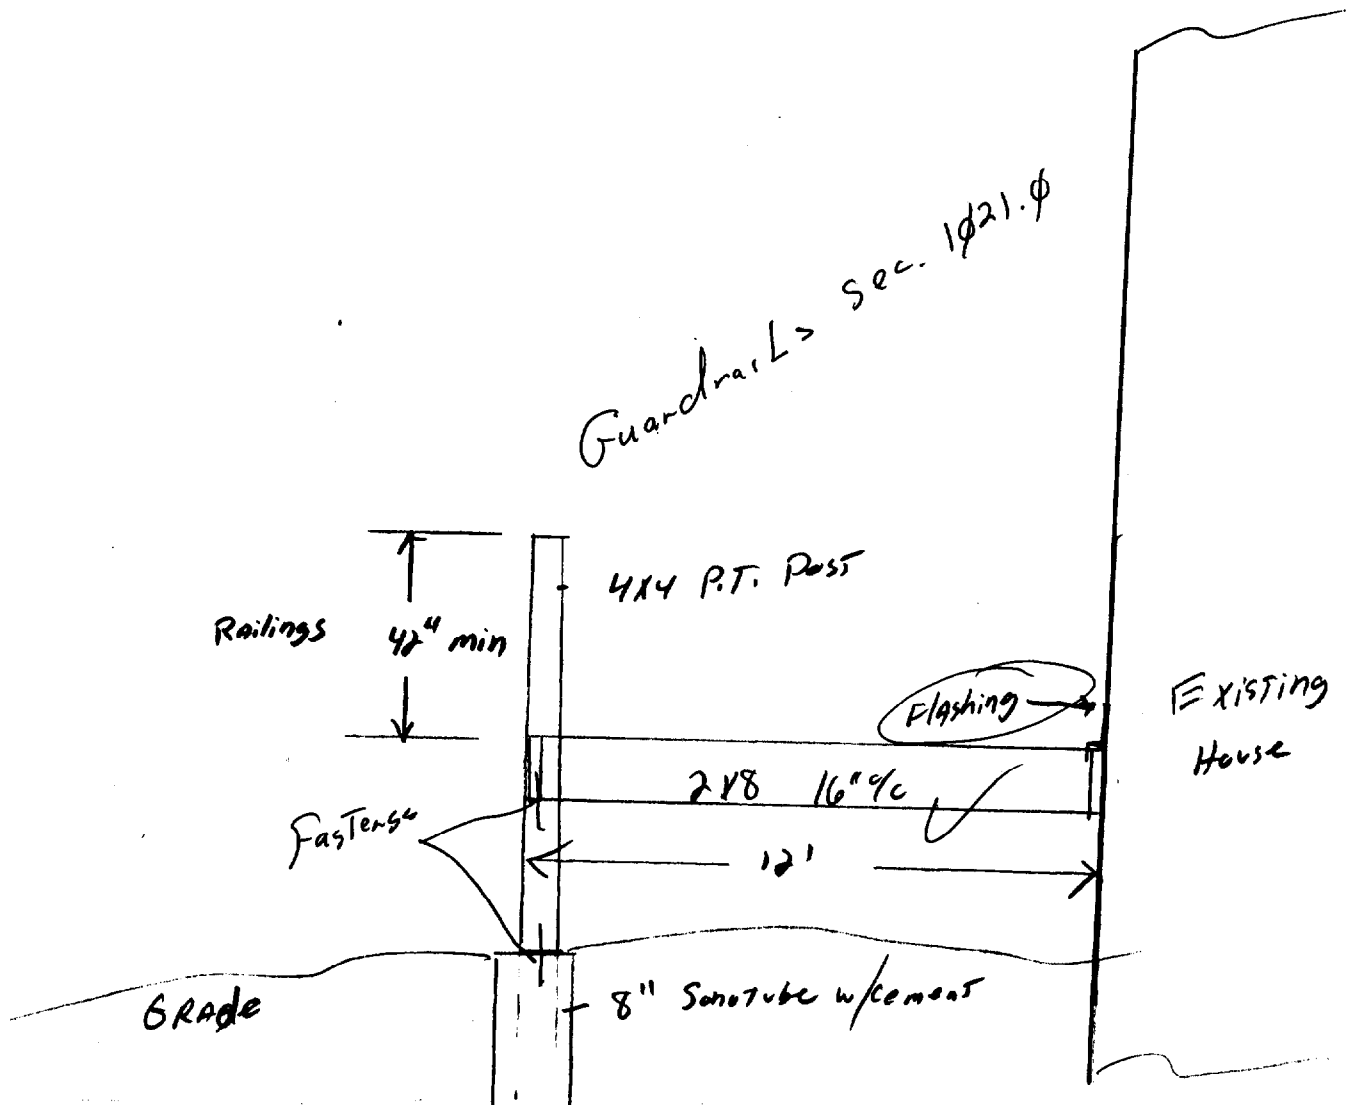 Guardrails sec. 1021.0
4x4 P.T. Post
Railings 42" min
Flashing
Existing
House
2x8 16" o/c
Fasteners
12'
Grade
8" Sonotube w/cement